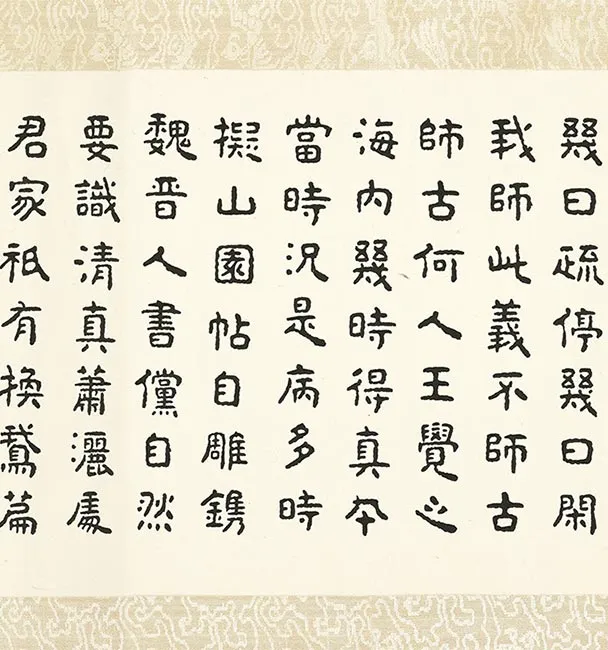 幾日疏停幾日閑
我師此義不師古
師古何人王覺之
海内幾時得真本
當時況是病多時
擬山園帖自雕鎸
魏晉人書儻自然
要識清真蕭灑處
君家祇有換鵞篇